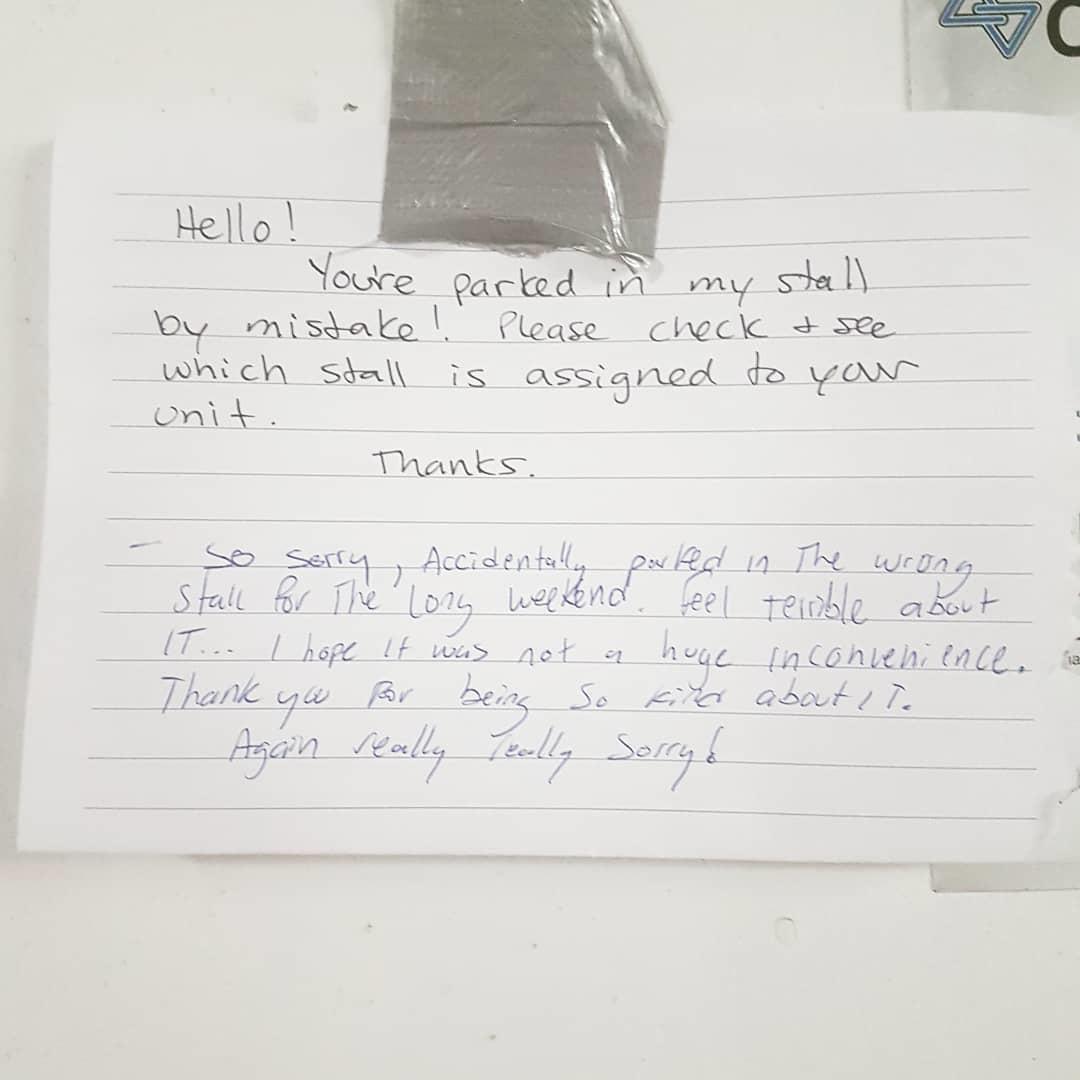 Hello!
You're parked in my stall
by mistake! Please check + see
which stall is assigned to your
unit.
Thanks.
- So sorry, Accidentally parked in The wrong
stall for The long weekend. feel terrible about
IT... I hope it was not a huge inconvenience.
Thank you for being so kind about IT.
Again really really sorry!